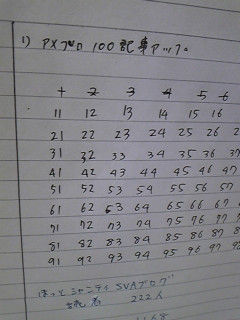 1) アメブロ 100記事アップ
1 2 3 4 5 6
11 12 13 14 15 16
21 22 23 24 25 26 2
31 32 33 34 35 36 37
41 42 43 44 45 46 47
51 52 53 54 55 56 57
61 62 63 64 65 66 67
71 72 73 74 75 76 77
81 82 83 84 85 86 87 8
91 92 93 94 95 96 97 9
ほっとシャンティ SVAブログ
読者 222人